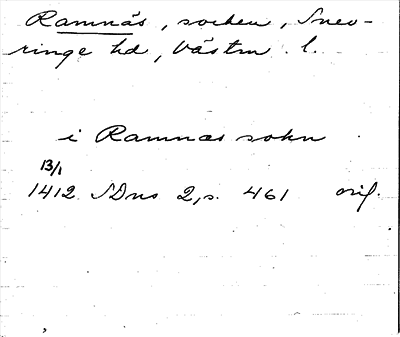 Ramnäs, socken, Snev-
ringe hd, Västm. l.
i Ramnæs sokn
13/1
1412 SDns 2, s. 461 orig.